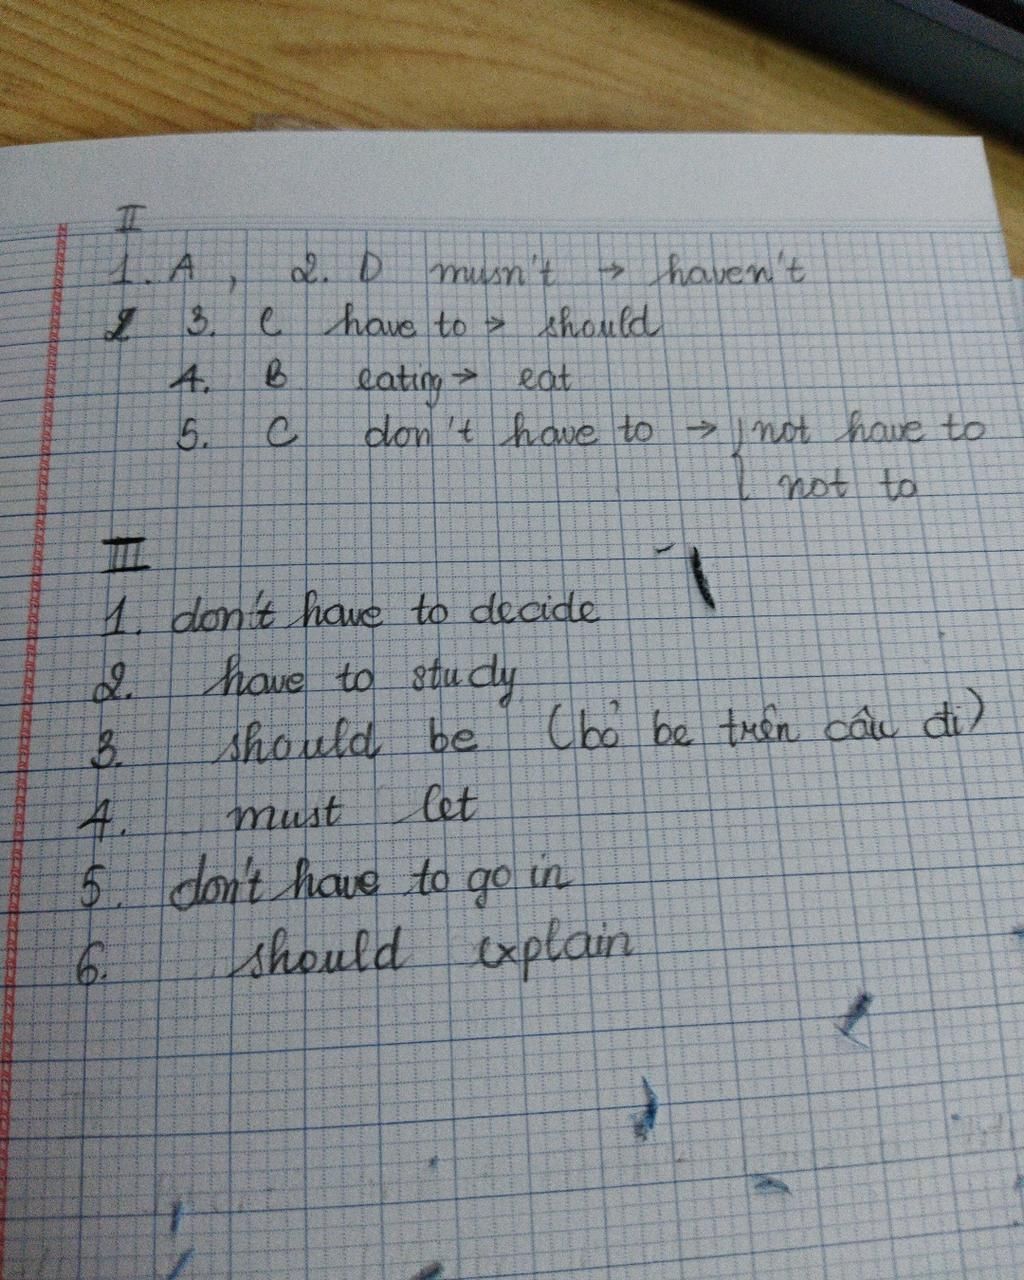 II
1. A , 2. D musn't → haven't
3. C have to → should
4. B eating → eat
5. C don't have to → { not have to
not to
III
1. don't have to decide
2. have to study
3. should be (bỏ be trên câu đi)
4. must let
5. don't have to go in
6. should explain